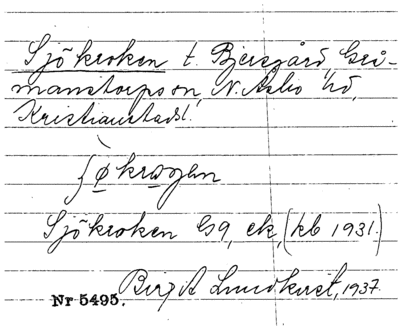 Sjökroken t. Bjersgård, Grå-
manstorps sn, N. Åsbo hd,
Kristianstads l.
ʃø̀krogen
Sjökroken G9, ek, (kb 1931.)
Birgit Lundkvist, 1937.
Nr 5495.